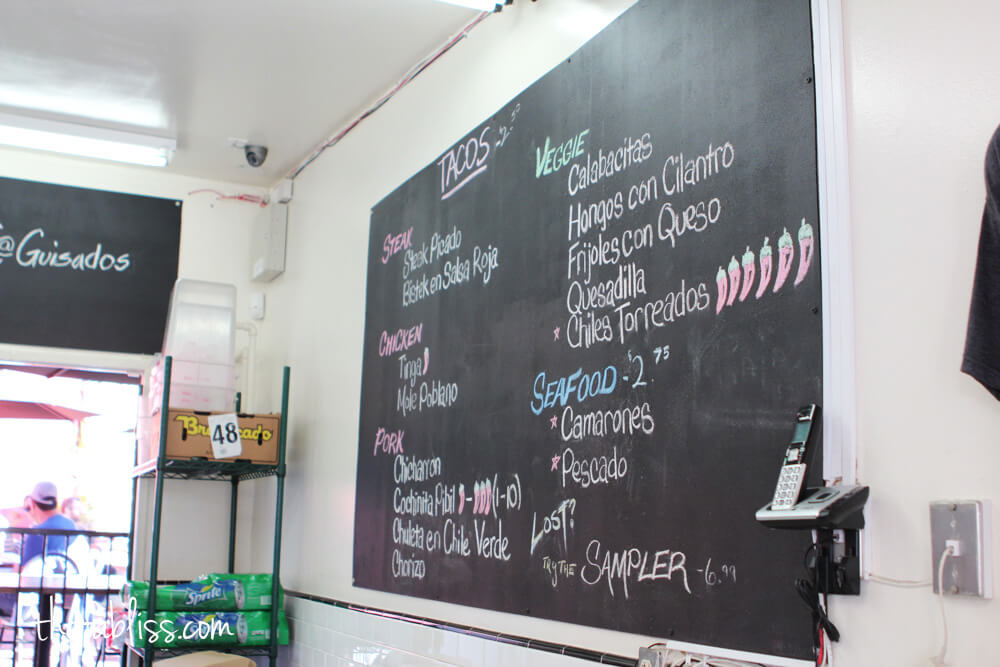 @Guisados
TACOS - 2.50
STEAK
Steak Picado
Bistek en Salsa Roja
CHICKEN
Tinga
Mole Poblano
PORK
Chicharron
Cochinita Pibil - (1-10)
Chuleta en Chile Verde
Chorizo
VEGGIE
Calabacitas
Hongos con Cilantro
Frijoles con Queso
Quesadilla
* Chiles Torreados
SEAFOOD - $2.75
* Camarones
* Pescado
LOST?
TRY THE SAMPLER - 6.99
48
Sprite